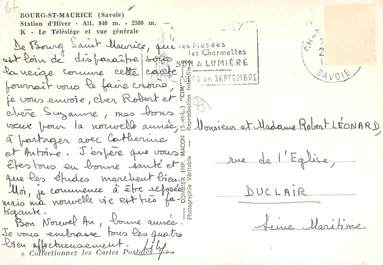 BOURG-ST-MAURICE (Savoie)
Station d'Hiver - Alt. 840 m. - 2500 m.
K - Le Télésiège et vue générale
De Bourg Saint Maurice, qui
est loin de disparaître sous
la neige comme cette carte
pourrait vous le faire croire,
je vous envoie, cher Robert et
chère Suzanne, mes bons
vœux pour la nouvelle année,
à partager avec Catherine
et Antoine. J'espère que vous
êtes tous en bonne santé et
que les études marchent bien.
Moi, je commence à être reposée
mais ma nouvelle vie est très fa-
tigante.
Bon Nouvel An, bonne année.
Je vous embrasse tous les quatre
bien affectueusement. Lily
Collectionnez les Cartes Postales
COMBIER IMP. MACON (S.-et-L.) "CIM"
Photographie Véritable - Reproduction Interdite
Musées
les Charmettes
SON & LUMIÈRE
en SEPTEMBRE
SAVOIE
Monsieur et Madame Robert LÉONARD
rue de l'Eglise,
DUCLAIR
Seine Maritime